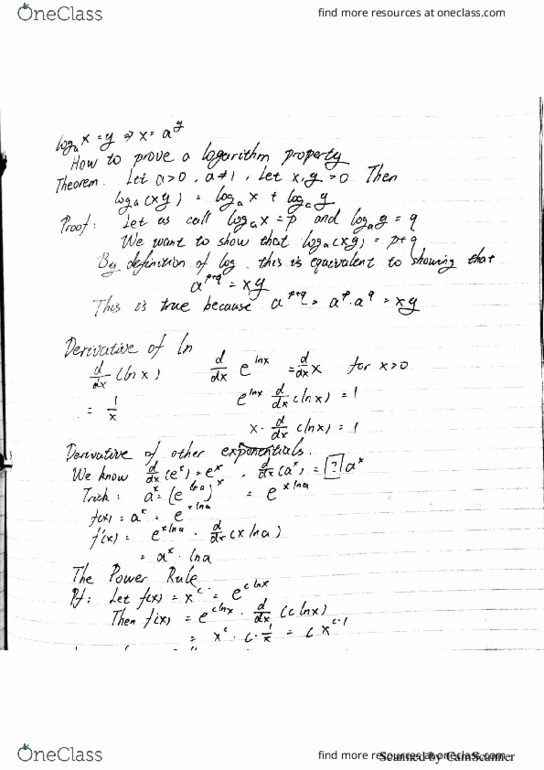 OneClass
find more resources at oneclass.com
logₐ x = y ⇒ x = a^y
How to prove a logarithm property
Theorem. Let a>0, a≠1, Let x, y >0 Then
logₐ(xy) = logₐ x + logₐ y
Proof: Let us call logₐ x = p and logₐ y = q
We want to show that logₐ(xy) = p+q
By definition of log, this is equivalent to showing that
a^(p+q) = xy
This is true because a^(p+q) = a^p · a^q = xy
Derivative of ln
d/dx (ln x) d/dx e^(lnx) = d/dx x for x>0
= 1/x e^(lnx) d/dx (ln x) = 1
x · d/dx (ln x) = 1
Derivative of other exponentials.
We know d/dx (e^x) = e^x . d/dx (a^x) = [?] a^x
Trick: a^x = (e^(lna))^x = e^(x lna)
f(x) = a^x = e^(x lna)
f'(x) = e^(x lna) · d/dx (x ln a)
= a^x · ln a
The Power Rule
Pf: Let f(x) = x^c = e^(c lnx)
Then f'(x) = e^(c lnx) · d/dx (c ln x)
= x^c · c · 1/x = c x^(c-1)
OneClass
find more resources at oneclass.com
Scanned by CamScanner